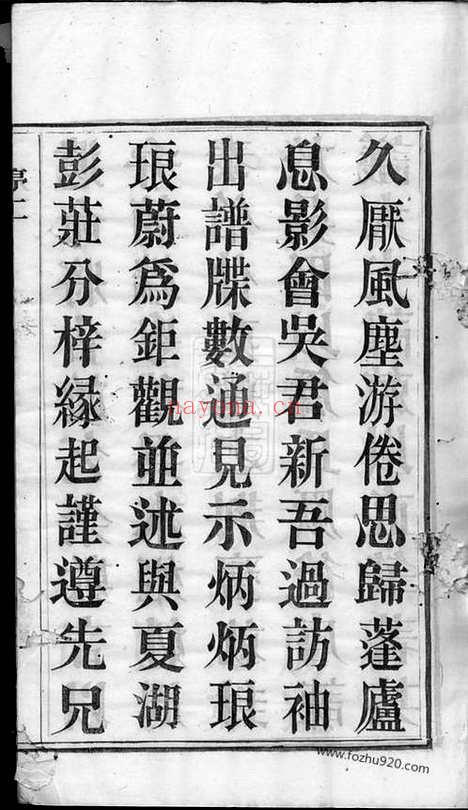 久厭風塵游倦思歸蓬廬
息影會吳君新吾過訪袖
出譜牒數通見示炳炳琅
琅蔚爲鉅觀並述與夏湖
彭莊分梓縁起謹遵先兄
nayona.cn
www.fozhu920.com